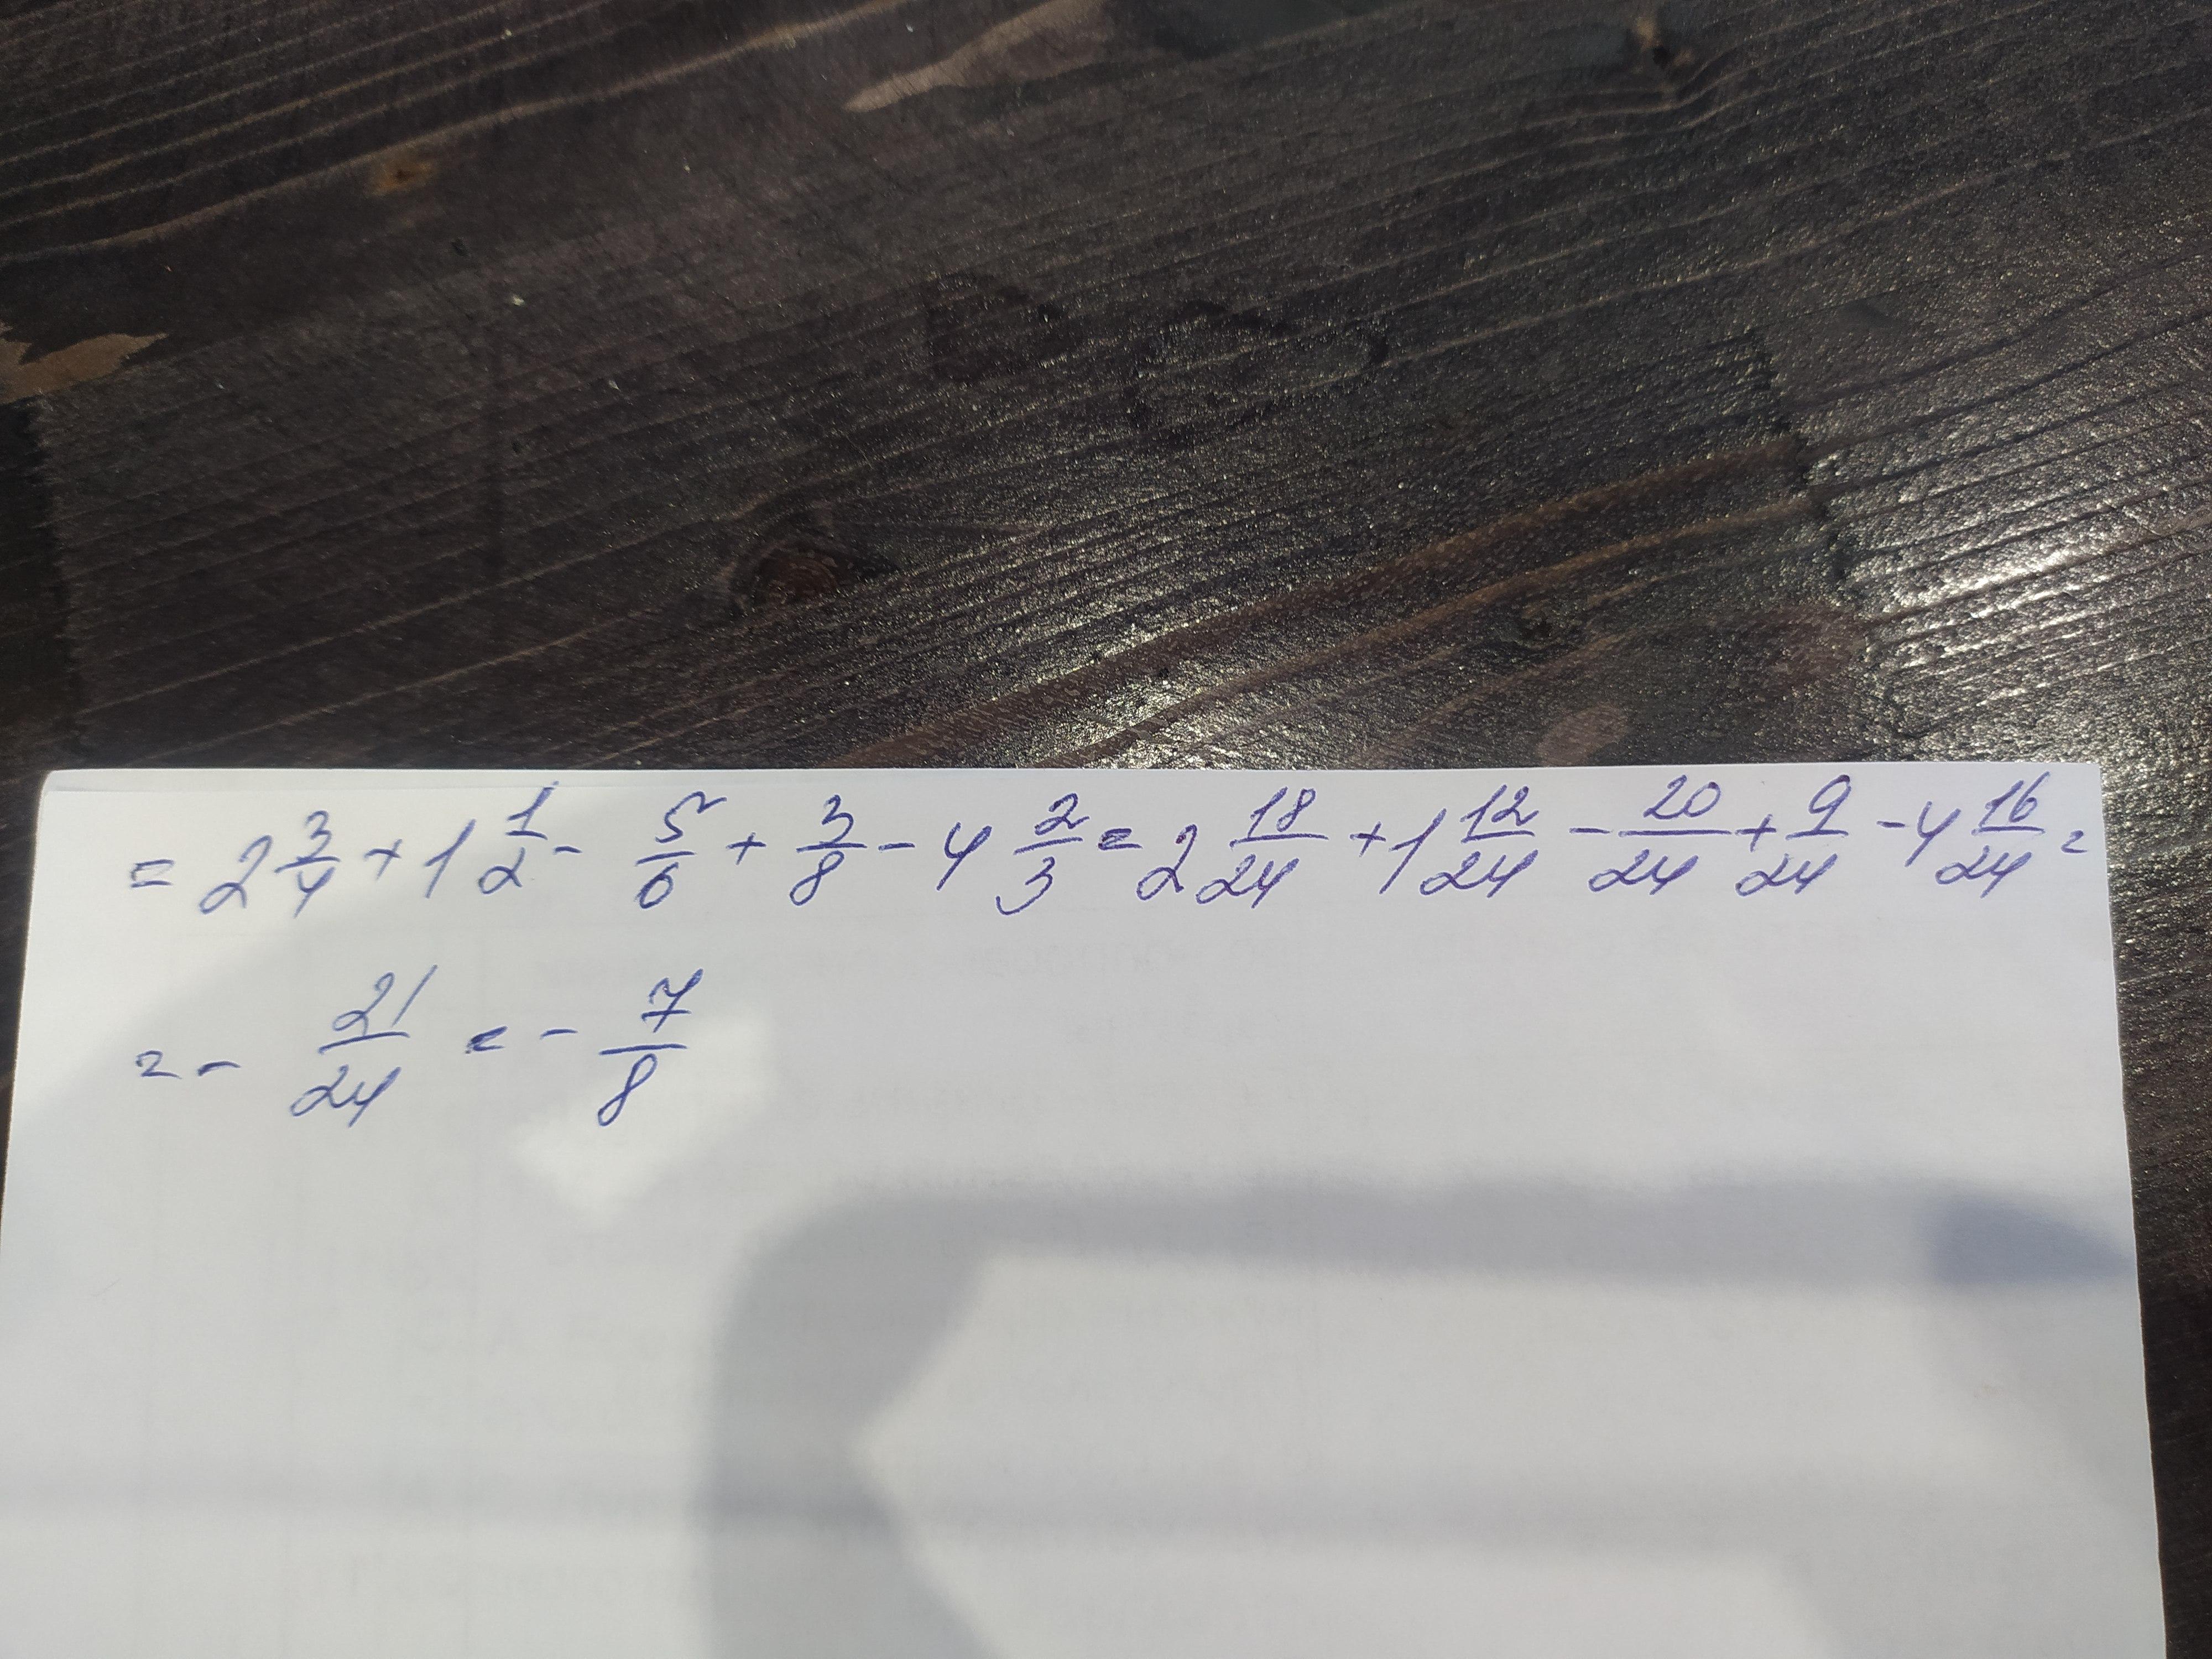 = 2 3/4 + 1 1/2 - 5/6 + 3/8 - 4 2/3 = 2 18/24 + 1 12/24 - 20/24 + 9/24 - 4 16/24 =
= - 21/24 = - 7/8